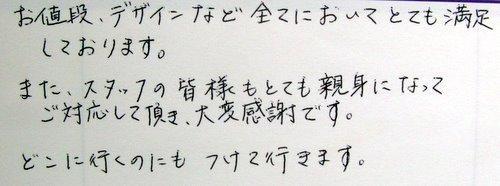 お値段、デザインなど全てにおいてとても満足
しております。
また、スタッフの皆様もとても親身になって
ご対応して頂き、大変感謝です。
どこに行くのにも つけて行きます。